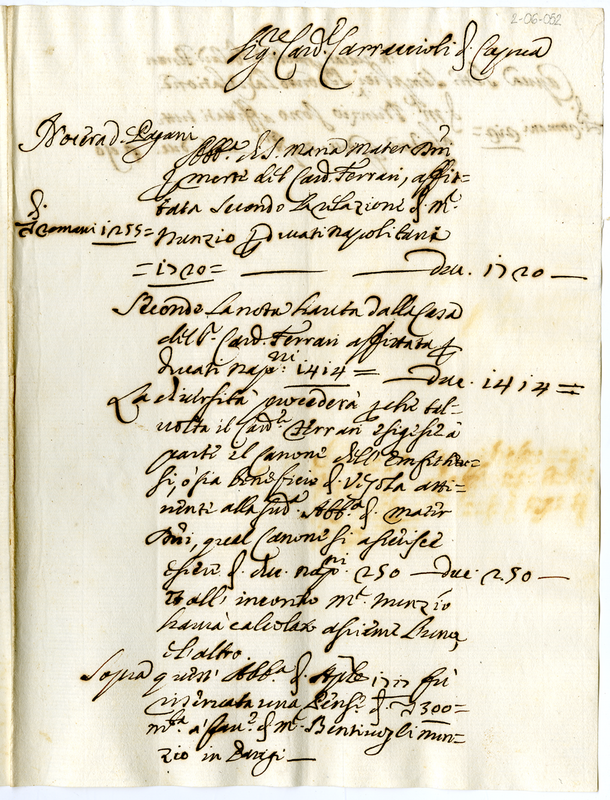 2-06-052
Sig.re Card.l Carraccioli di Capua
Nocera de Pagani
Abb.a di S. Maria Mater Dñi
morte del Card. Ferrari, affit=
tata secondo la relazione di M.r
Nunzio p ducati napolitani
=1720= — — duc. 1720 —
di
romani 1255=
Secondo la nota hauta dalla Casa
del Card. Ferrari affittata p
ducati nap.ni 1414 = — duc. 1414 =
La diversità procederà p che tal=
volta il Card.le Ferrari esigesse à
parte il Canone dell'Emfiteu=
si, ò sia beneficio di attí=
nente alla sud.a Abb.a di Mater
Dñi, qual Canone si asserisce
essere di duc. nap.ni 250 — duc. 250 —
et all'incontro M.r Nunzio
haurà calcolato assieme l'uno, e
l'altro.
Sopra questa Abb.a di Aple 1717 fù
riservata una Pens.e di 300=
m.ta à fau.e di M.r Bentivogli nun=
zio in Parigi —